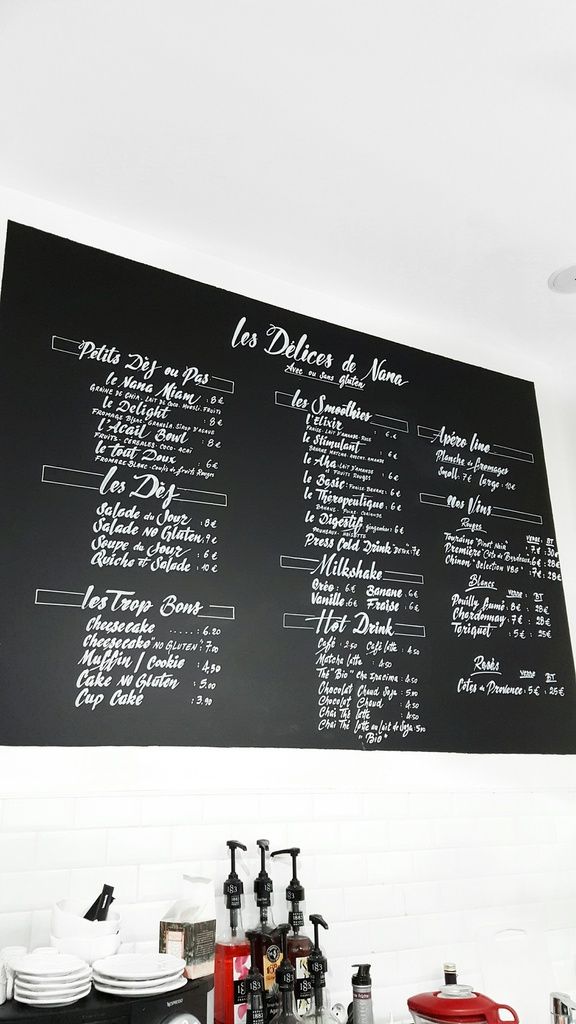 les Délices de Nana
Avec ou sans gluten
Petits Dèj ou Pas
le Nana Miam : 8€
GRAINE DE CHIA, LAIT DE COCO, MUESLI, FRUITS
le Delight : 8€
FROMAGE BLANC, GRANOLA, SIROP D'AGAVE
l'Acaïl Bowl : 8€
FRUITS-CEREALES-COCO-ACAÏ
le tout Doux : 6€
FROMAGE BLANC-Coulis de fruits Rouges
les Dèj
Salade du Jour : 8€
Salade NO Gluten : 9€
Soupe du Jour : 6€
Quiche et Salade : 10€
les Trop Bons
Cheesecake ..... : 6.20
Cheesecake "NO GLUTEN" : 7.00
Muffin / Cookie : 4.50
Cake NO Gluten : 5.00
Cup Cake : 3.90
les Smoothies
l'Elixir : 6€
FRAISE-LAIT D'AMANDE-
le Stimulant : 6€
BANANE MATCHA, AMANDE
le Aka LAIT D'AMANDE : 6€
et FRUITS ROUGES
le Basic FRAISE BANANE : 6€
le Thérapeutique : 6€
BANANE, POIRE
le Digestif gingembre : 6€
Press Cold Drink "DETOX" : 7€
Milkshake
Oréo : 6€ Banane : 6€
Vanille : 6€ Fraise : 6€
Hot Drink
Café : 2.50 Café latte : 4.50
Matcha latte : 4.50
Thé "Bio" Chia Spacima : 4.50
Chocolat Chaud Soja : 5.00
Chocolat Chaud : 4.50
Chaï Thé latte : 4.50
Chaï Thé latte au lait de Soja : 5.00
"Bio"
Apéro line
Planche de fromages
Small : 7€ large : 10€
Nos Vins
Rouges
Verre BT
Touraine "Pinot Noir" : 7€ : 30€
Première "Côte de Bordeaux" : 6€ : 28€
Chinon "Selection VBG" : 7€ : 28€
Blancs
Verre BT
Pouilly Fumé : 8€ : 28€
Chardonnay : 7€ : 28€
Tariquet : 5€ : 25€
Rosés
Verre BT
Côtes de Provence : 5€ : 25€
1883
1883
1883
NESPRESSO